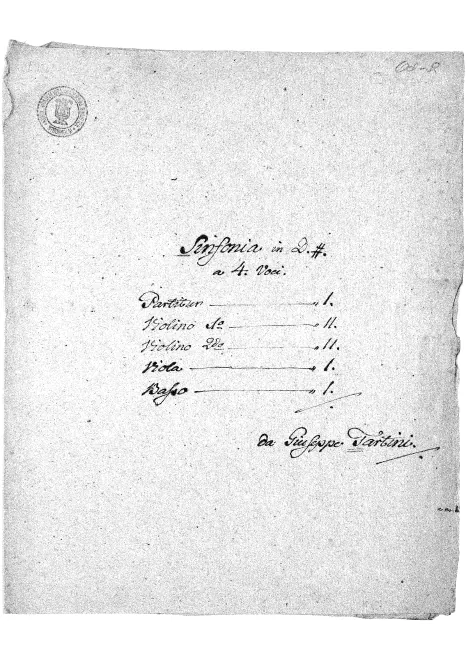 Sinfonia in D.#.
a 4. Voci.
Partitur " 1.
Violino 1º " 11.
Violino 2do " 11.
Viola " 1.
Basso " 1.
da Giuseppe Tartini.